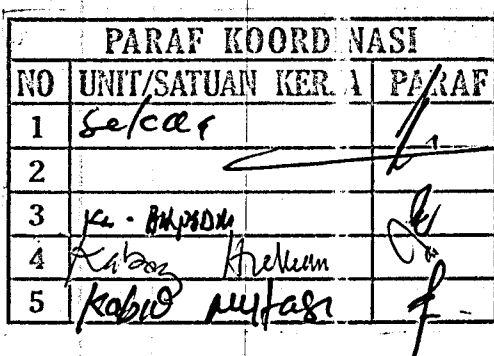 PARAF KOORDINASI
NO UNIT/SATUAN KERJA PARAF
1 Sekda
2
3 Ka. BKPSDM
4 Kabag Hukum
5 Kabid Mutasi